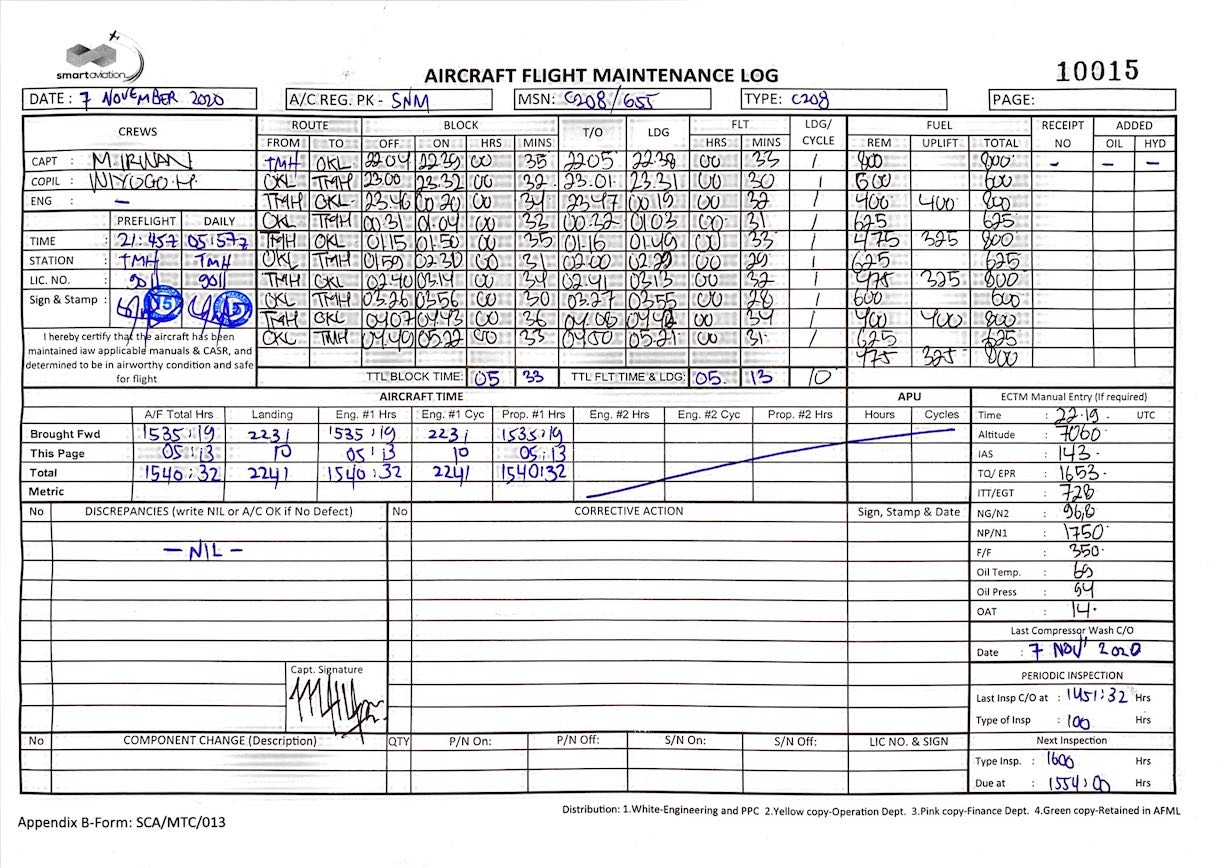 smartaviation
AIRCRAFT FLIGHT MAINTENANCE LOG
10015
DATE : 7 NOVEMBER 2020 A/C REG. PK - SNM MSN: C208/655 TYPE: C208 PAGE:
CREWS ROUTE BLOCK T/O LDG FLT LDG/ CYCLE FUEL RECEIPT NO ADDED
FROM TO OFF ON HRS MINS HRS MINS REM UPLIFT TOTAL OIL HYD
CAPT : M. IRWAN TMH OKL 22.04 22.39 00 35 22.05 22.38 00 33 1 800 800 - - -
COPIL : WIYOGO.H. OKL TMH 23.00 23.32 00 32 23.01 23.31 00 30 1 600 600
ENG : - TMH OKL 23.46 00.20 00 34 23.47 00.19 00 32 1 400 400 800
OKL TMH 00.31 01.04 00 33 00.32 01.03 00 31 1 625 625
PREFLIGHT DAILY
TIME : 21:45Z 05:57Z TMH OKL 01.15 01.50 00 35 01.16 01.49 00 33 1 475 325 800
STATION : TMH TMH OKL TMH 01.59 02.30 00 31 02.00 02.29 00 29 1 625 625
LIC. NO. : 9011 9011 TMH OKL 02.40 03.14 00 34 02.41 03.13 00 32 1 475 325 800
Sign & Stamp : 15 15 OKL TMH 03.26 03.56 00 30 03.27 03.55 00 28 1 600 600
TMH OKL 04.07 04.43 00 36 04.08 04.42 00 34 1 400 400 800
OKL TMH 04.49 05.22 00 33 04.50 05.21 00 31 1 625 625
475 325 800
I hereby certify that the aircraft has been
maintained iaw applicable manuals & CASR, and
determined to be in airworthy condition and safe
for flight
TTL BLOCK TIME: 05 33 TTL FLT TIME & LDG: 05. 13 10
AIRCRAFT TIME APU ECTM Manual Entry (If required)
A/F Total Hrs Landing Eng. #1 Hrs Eng. #1 Cyc Prop. #1 Hrs Eng. #2 Hrs Eng. #2 Cyc Prop. #2 Hrs Hours Cycles
Brought Fwd 1535:19 2231 1535:19 2231 1535:19
This Page 05:13 10 05:13 10 05:13
Total 1540:32 2241 1540:32 2241 1540:32
Metric
Time : 22.19. UTC
Altitude : 7060
IAS : 143.
TQ/ EPR : 1653.
ITT/EGT : 728
NG/N2 : 96,8
NP/N1 : 1750
F/F : 350.
Oil Temp. : 69
Oil Press : 94
OAT : 14.
No DISCREPANCIES (write NIL or A/C OK if No Defect) No CORRECTIVE ACTION Sign, Stamp & Date
- NIL -
Last Compressor Wash C/O
Date : 7 NOV' 2020
Capt. Signature
PERIODIC INSPECTION
Last Insp C/O at : 1451:32 Hrs
Type of Insp : 100 Hrs
No COMPONENT CHANGE (Description) QTY P/N On: P/N Off: S/N On: S/N Off: LIC NO. & SIGN
Next Inspection
Type Insp. : 1600 Hrs
Due at : 1554:00 Hrs
Distribution: 1.White-Engineering and PPC 2.Yellow copy-Operation Dept. 3.Pink copy-Finance Dept. 4.Green copy-Retained in AFML
Appendix B-Form: SCA/MTC/013